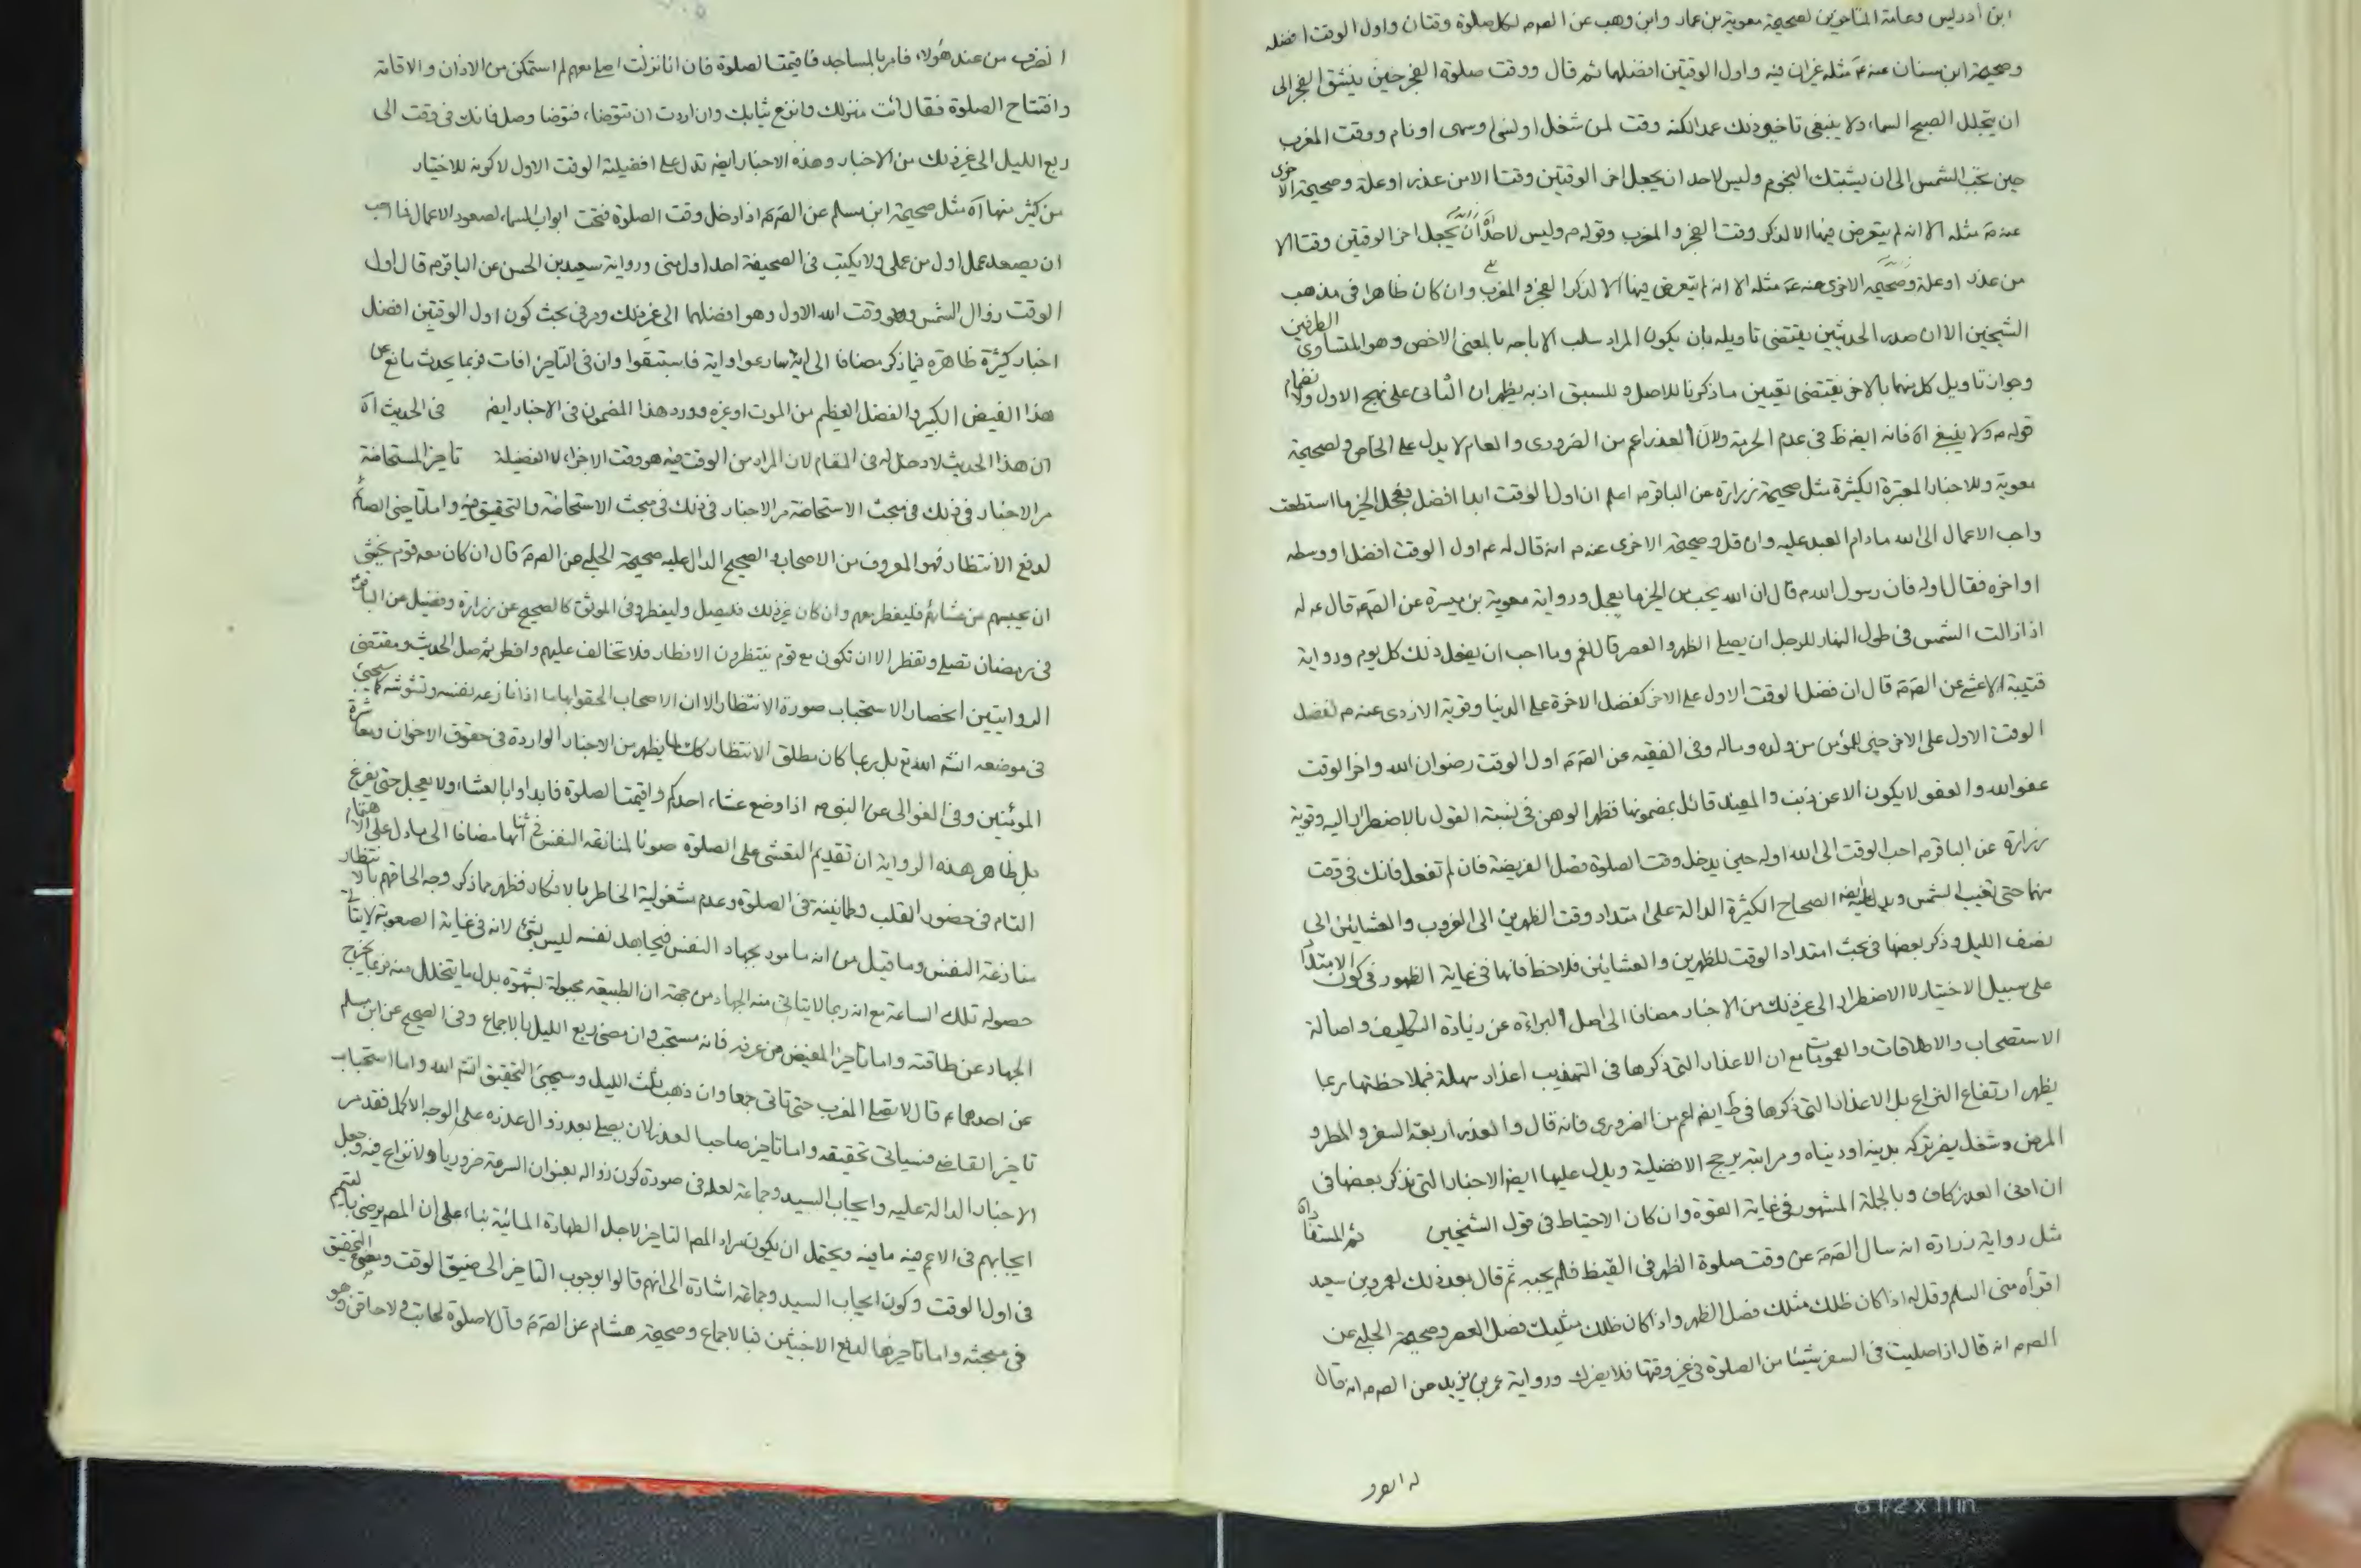 ابن أدريس وعامة المتاخرين لصحيحة معوية بن عمار وابن وهب عن الصـ م لكل صلوة وقتان واول الوقت افضله
وصحيحة ابن سنان عنه م مثله غير ان فيه واول الوقتين افضلهما ثم قال ووقت صلوة الفجر حين ينشق الفجر الى
ان يتجلل الصبح السماء ولا ينبغى تاخير ذلك عمدا لكنه وقت لمن شغل او نسى او سهى او نام ووقت المغرب
حين تجب الشمس الى ان يشتبك النجوم وليس لاحد ان يجعل اخر الوقتين وقتا الا من عذر او علة وصحيحة الاخرى
عنه م مثله الا انه لم يتعرض فيها الا لذكر وقت الفجر والمغرب وقوله م وليس لاحد ان يجعل اخر الوقتين وقتا الا
من عذر او علة وصحيحة الاخرى عنه م مثله الا انه لم يتعرض فيها الا لذكر الفجر والمغرب وان كان ظاهرا فى مذهب
الشيخين الا ان صدر الحديثين يقتضى تاويله بان يكون المراد سلب الاباحه بالمعنى الاخص وهو المتساوى الطرفين
وجواز تاويل كل منهما بالاخر يقتضى تعيين ما ذكرنا للاصل وللسبق اذ به يظهر ان الثانى على نهج الاول ولانضمام
قوله م ولا ينبغى اه فانه ايضه ظ فى عدم الحرمة ولان العذر اعم من الضرورى والعام لا يدل على الخاص ولصحيحة
معوية وللاخبار المعتبرة الكثيرة مثل صحيحة زرارة عن الباقر م اعلم ان اول الوقت ابدا افضل فعجل الخير ما استطعت
واحب الاعمال الى الله مادام العبد عليه وان قل وصحيحة الاخرى عنه م انه قال له م اول الوقت افضل او وسطه
او اخره فقال اوله فان رسول الله م قال ان الله يحب من الخير ما يعجل ورواية معوية بن ميسرة عن الصـ م قال م له
اذا زالت الشمس فى طول النهار للرجل ان يصلى الظهر والعصر قال نعم وما احب ان يفعل ذلك كل يوم ورواية
قتيبة الاعشى عن الصـ م قال ان فضل الوقت الاول على الاخر كفضل الاخرة على الدنيا وقوية الازدى عنه م لفضل
الوقت الاول على الاخر خير للمؤمن من ولده وماله وفى الفقيه عن الصـ م اول الوقت رضوان الله واخر الوقت
عفو الله والعفو لا يكون الا عن ذنب والمفيد قائل بمضمونها فظهر الوهن فى نسبة القول بالاضطرار اليه وقوية
زرارة عن الباقر م احب الوقت الى الله اوله حين يدخل وقت الصلوة فصل الفريضة فان لم تفعل فانك فى وقت
منها حتى تغيب الشمس ويدل عليه ايضه الصحاح الكثيرة الدالة على امتداد وقت الظهرين الى الغروب والعشائين الى
نصف الليل وذكر بعضها فى بحث امتداد الوقت للظهرين والعشائين فلاحظ فانها فى غاية الظهور فى كون الامتداد
على سبيل الاختيار لا الاضطرار الى غير ذلك من الاخبار مضافا الى اصل البراءة عن زيادة التكليف واصالة
الاستصحاب والاطلاقات والعمومات مع ان الاعذار التى ذكرها فى التهذيب اعذار سهلة فبملاحظتها ربما
يظهر ارتفاع النزاع بل الاعذار التى ذكرها فى ط ايضه اعم من الضرورى فانه قال والعذر اربعة السفر والمطر و
المرض وشغل يضر تركه بدينه او دنياه ومراتبه يرجح الافضلية ويدل عليها ايضه الاخبار التى نذكر بعضها فى
ان ادنى العذر كاف وبالجلة المشهور فى غاية القوة وان كان الاحتياط فى قول الشيخين
مثل رواية زرارة انه سال الصـ م عن وقت صلوة الظهر فى القيظ فلم يجبه ثم قال بعد ذلك لعمرو بن سعيد
اقرأه منى السلم وقل له اذا كان ظلك مثلك فصل الظهر واذا كان ظلك مثليك فصل العصر وصحيحة الحلبى عن
الصـ م انه قال اذا صليت فى السفر شيئا من الصلوة فى غير وقتها فلا يضرك ورواية عمر بن يزيد عن الصـ م انه قال
انصرف من عند هؤلاء فامر بالمساجد فاقيمت الصلوة فان انا نزلت اصلى معهم لم استمكن من الاذان والاقامة
وافتتاح الصلوة فقال ائت منزلك وانزع ثيابك وان اردت ان تتوضا، فتوضا وصل فانك فى وقت الى
ربع الليل الى غير ذلك من الاخبار وهذه الاخبار ايضه تدل على افضيلة الوقت الاول لا كونه للاختيار
من كثير منها اه مثل صحيحة ابن مسلم عن الصـ م اذا دخل وقت الصلوة فتحت ابواب السماء لصعود الاعمال فما احب
ان يصعد عمل اول من عملى ولا يكتب فى الصحيفة احد اول منى ورواية سعيد بن الحسن عن الباقر م قال اول
الوقت زوال الشمس وهو وقت الله الاول وهو افضلهما الى غير ذلك ومر فى بحث كون اول الوقتين افضل
اخبار كثيرة ظاهرة فيما ذكر مضافا الى اية سارعوا واية فاستبقوا وان فى التاخير افات فربما يحدث مانع عن
هذا الفيض الكبير والفضل العظيم من الموت او غيره وورد هذا المضمون فى الاخبار ايضه فى الحديث اه
ان هذا الحديث لا دخل له فى المقام لان المراد من الوقت فيه هو وقت الاجزاء لا الفضيلة تاخير المستحاضة
مر الاخبار فى ذلك فى مبحث الاستحاضة مر الاخبار فى ذلك فى مبحث الاستحاضة والتحقيق فيه واما تاخير الصائم
لدفع الانتظار فهو المعروف من الاصحاب والصحيح الدال عليه صحيحة الحلبى عن الصـ م قال ان كان معه قوم يخشى
ان يحبسهم عن عشائهم فليفطر معهم وان كان غير ذلك فليصل وليفطر وفى الموثق كالصحيح عن زرارة وفضيل عن الباقر م
فى رمضان تصلى وتفطر الا ان تكون مع قوم ينتظرون الافطار فلا تخالف عليهم وافطر ثم صل الحديث ومقتضى
الروايتين انحصار الاستحباب صورة الانتظار الا ان الاصحاب الحقوا بها ما اذا نازعه نفسه وتشوشه كما سيجئ
فى موضعه انشـ الله تع بل ربما كان مطلق الانتظار كك لما يظهر من الاخبار الواردة فى حقوق الاخوان ومعاشرة
المومنين وفى الغوالى عن النبى م اذا وضع عشاء احدكم واقيمت الصلوة فابداوا بالعشاء ولا يعجل حتى يفرغ
بل ظاهر هذه الرواية ان تقديم التعشى على الصلوة صونا لمنازعة النفس فى اثنائها مضافا الى ما دل على الاهتمام
التام فى حضور القلب وطمانينة فى الصلوة وعدم مشغولية الخاطر بالافكار فظهر مما ذكر وجه الحاقهم بالانتظار
منازعة النفس وما قيل من انه مامور بجهاد النفس فيجاهد نفسه ليس بشئ لانه فى غاية الصعوبة لا يتاتى
حصوله تلك الساعة مع انه ربما لا يتاتى منه الجهاد من جهة ان الطبيعة مجبولة لشهوة بدل ما يتحلل منه فربما يخرج
الجهاد عن طاقته واما تاخير المفيض من عرفه فانه مستحب وان مضى ربع الليل بالاجماع وفى الصحيح عن ابن مسلم
عن احدهما م قال لا تصل المغرب حتى تاتى جمعا وان ذهب ثلث الليل وسيجئ التحقيق انشـ الله واما استحباب
تاخير القاضى فسياتى تحقيقه واما تاخير صاحب العذر لان يصلى بعد زوال عذره على الوجه الاكمل فقد مر
الاخبار الدالة عليه وايجاب السيد وجماعة لعله فى صورة كون زواله بعنوان السرعة ضروريا ولا نزاع فيه وجعل
ايجابهم فى الاعم فيه ما فيه ويحتمل ان يكون مراد المصـ التاخير لاجل الطهارة المائية بناء على ان المصـ يرضى بالتيمم
فى اول الوقت وكون ايجاب السيد وجماعة اشارة الى انهم قالوا بوجوب التاخير الى ضيق الوقت وسيجئ التحقيق
فى مبحثه واما تاخيرها لدفع الاخبثين فبالاجماع وصحيحة هشام عن الصـ م قال لا صلوة لحاقب ولا حاقن وهو